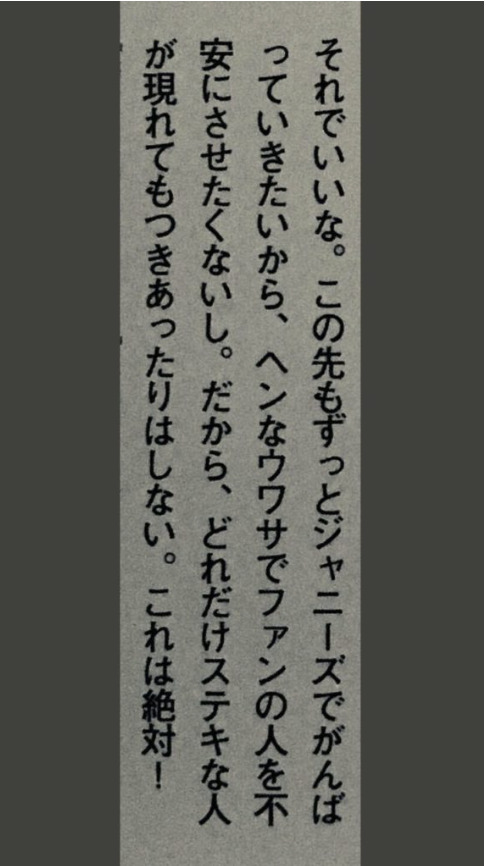 それでいいな。この先もずっとジャニーズでがんば
っていきたいから、ヘンなウワサでファンの人を不
安にさせたくないし。だから、どれだけステキな人
が現れてもつきあったりはしない。これは絶対！